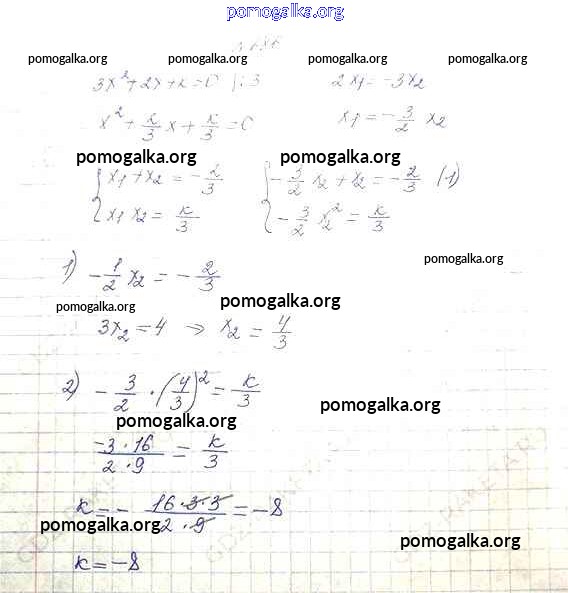 pomogalka.org
pomogalka.org pomogalka.org pomogalka.org
3x²+2x+k=0 |:3 2x₁=-3x₂
x²+2/3 x+k/3=0 x₁=-3/2 x₂
pomogalka.org pomogalka.org
{x₁+x₂=-2/3 {-3/2 x₂+x₂=-2/3 (1)
x₁x₂=k/3 -3/2 x₂²=k/3
pomogalka.org
1) -1/2 x₂=-2/3
pomogalka.org
pomogalka.org
3x₂=4 ⇒ x₂=4/3
2) -3/2·(4/3)²=k/3
pomogalka.org
pomogalka.org
-3·16/2·9=k/3
k=-16·3·3/2·9=-8
pomogalka.org
pomogalka.org
k=-8